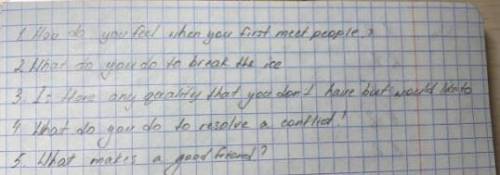 1. How do you feel when you first meet people?
2. What do you do to break the ice
3. Is there any quality that you don't have but would like to
4. What do you do to resolve a conflict?
5. What makes a good friend?